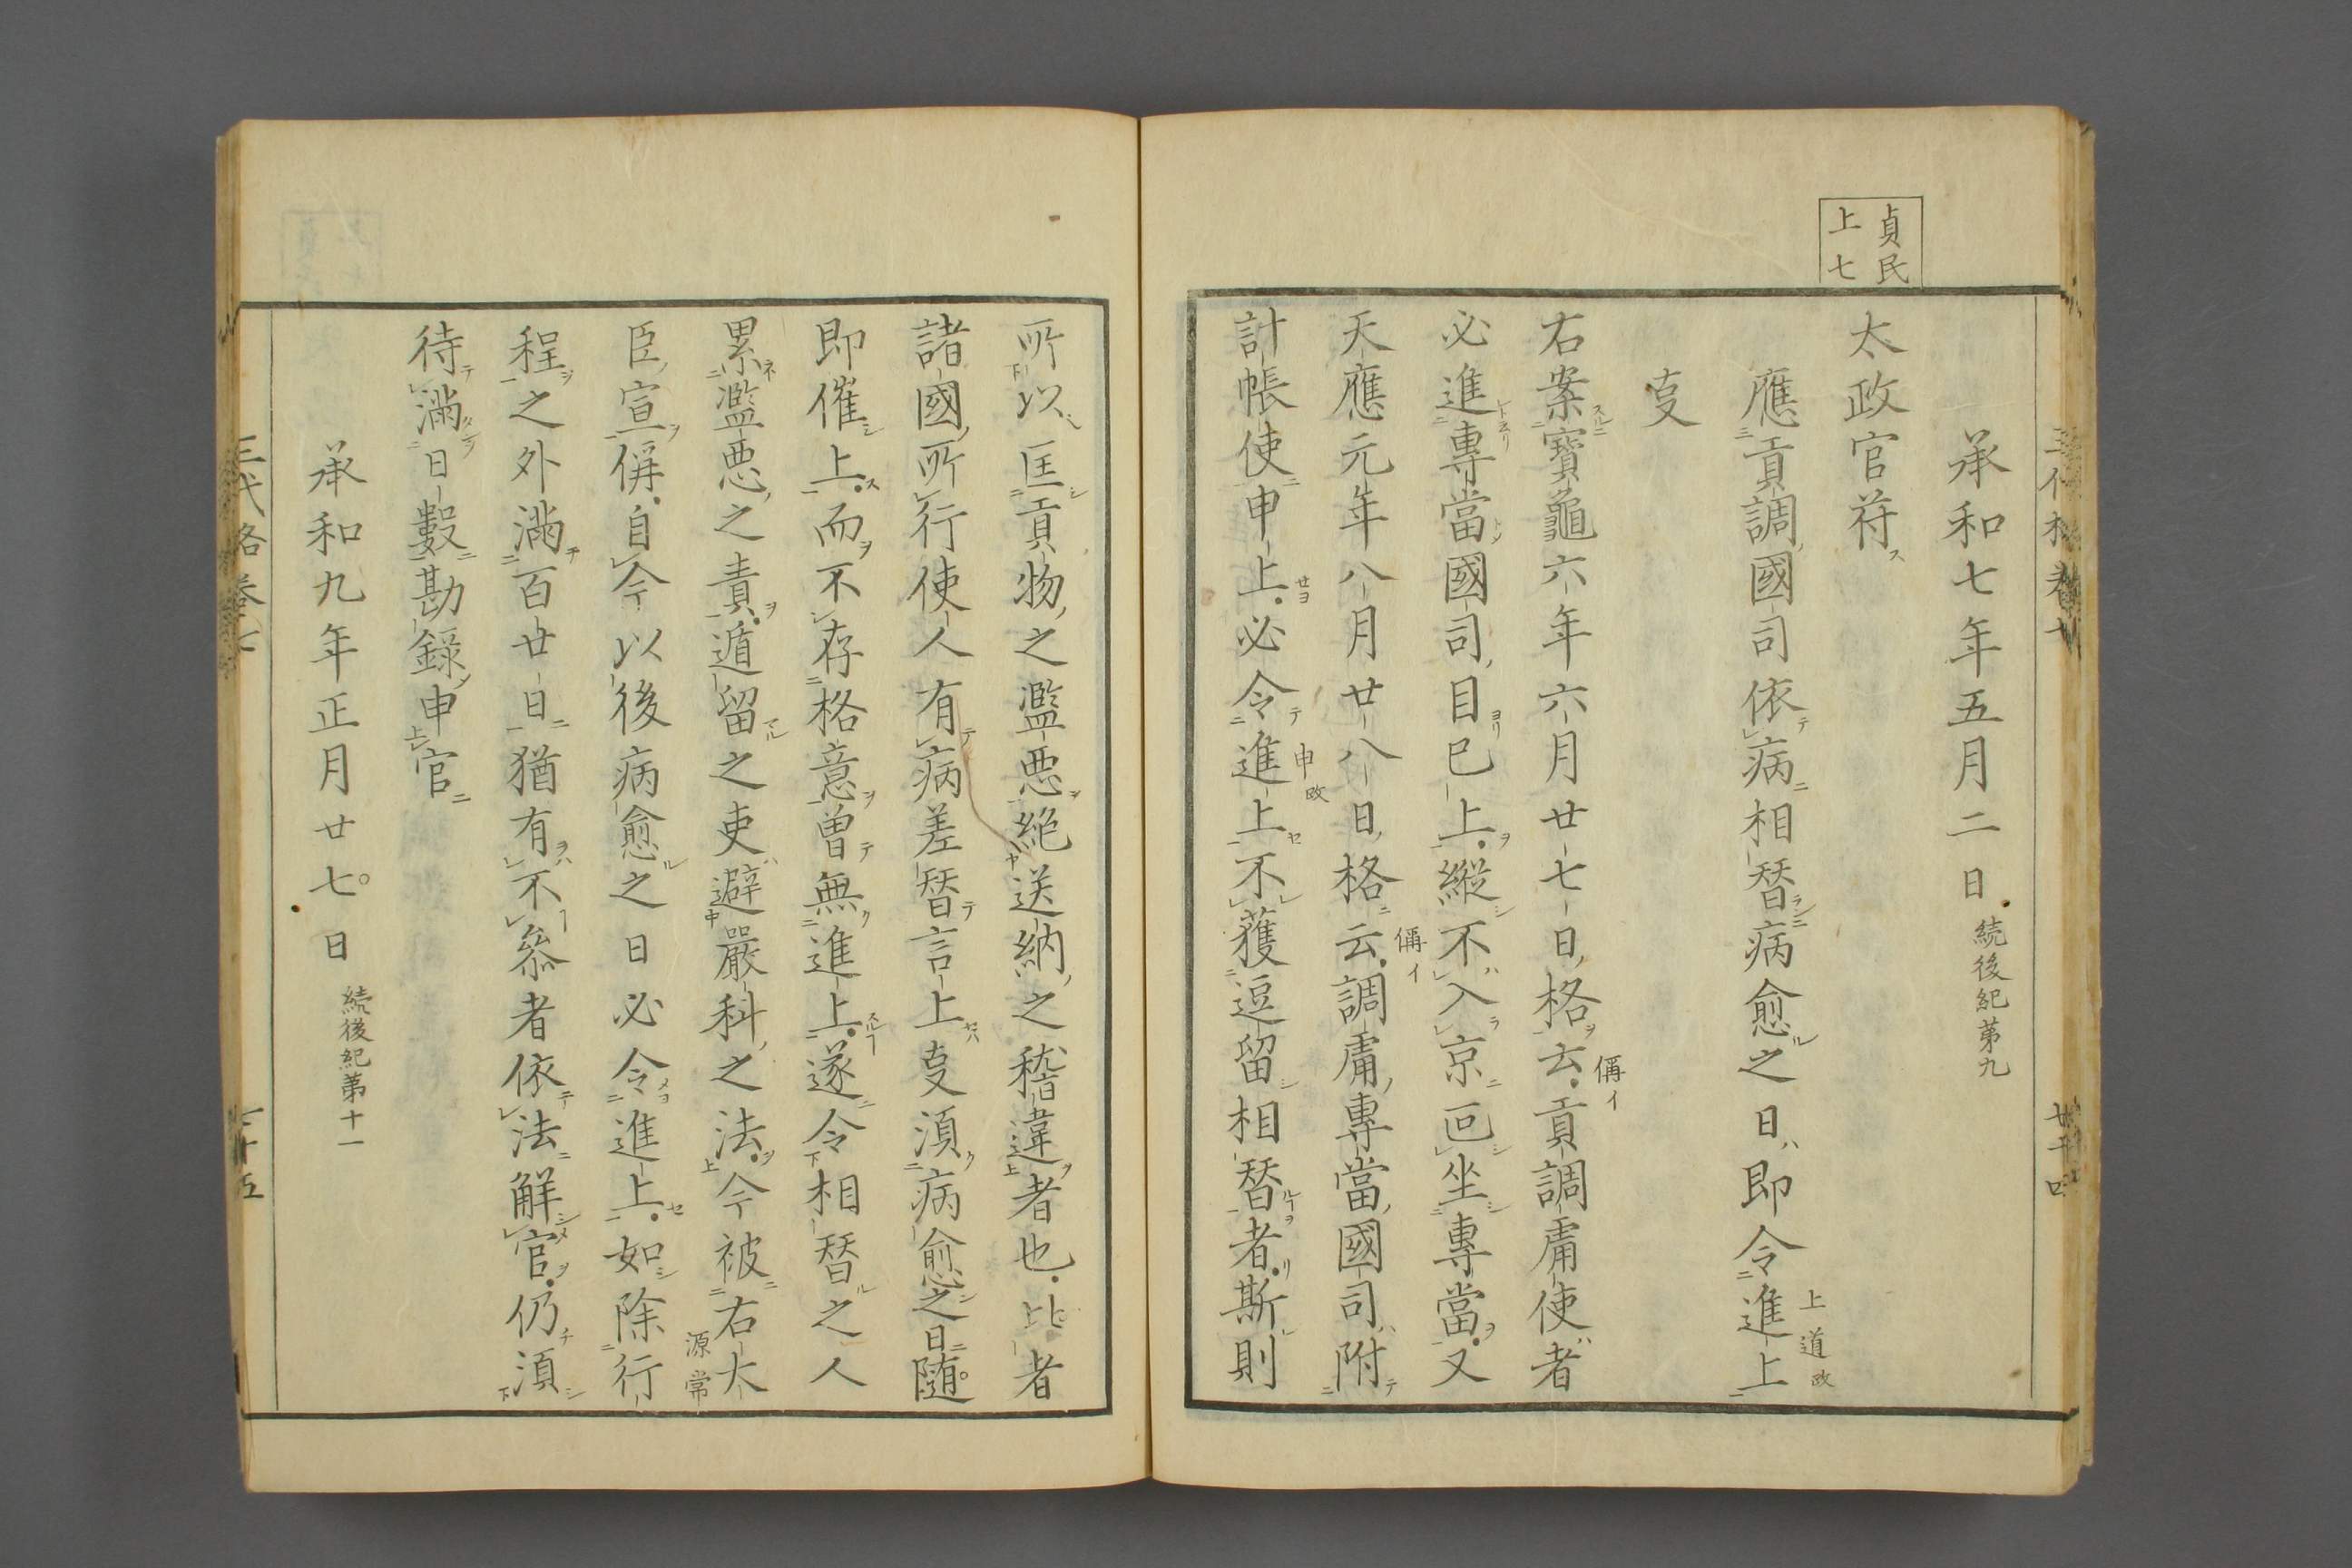 貞民
上七
承和七年五月二日 続後紀第九
太政官符
應貢調國司依病相替病愈之日即令進上
上道政
叓
右案寳龜六年六月廿七日格云貢調庸使者
偁イ
必進專當國司目已上縦不入京迴坐專當又
天應元年八月廿八日格云調庸專當國司附
偁イ
計帳使申上必令進上不獲逗留相替者斯則
申政
所以匡貢物之濫悪絶送納之稽違者也比者
諸國所行使人有病差替言上叓湏病愈之日随
即催上而不存格意曽無進上遂令相替之人
累濫悪之責遁留之吏避嚴科之法今被右大
源常
臣宣偁自今以後病愈之日必令進上如除行
程之外満百廿日猶有不叅者依法解官仍湏
待満日數勘錄申官
承和九年正月廿七日 続後紀第十一